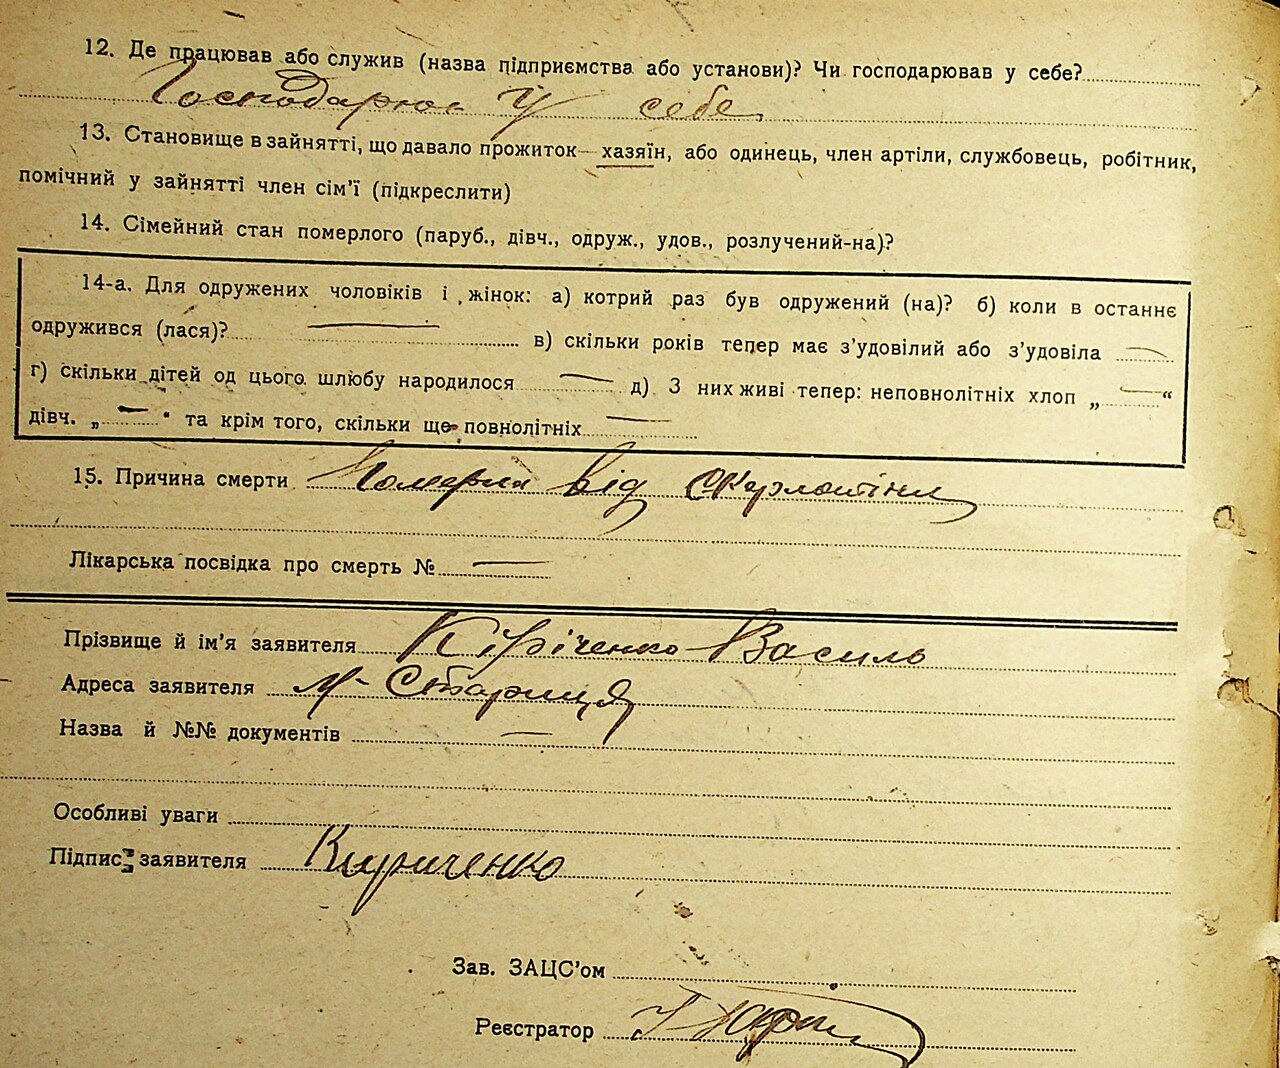 12. Де працював або служив (назва підприємства або установи)? Чи господарював у себе?
Господарює у себе
13. Становище в зайнятті, що давало прожиток—хазяїн, або одинець, член артіли, службовець, робітник,
помічний у зайнятті член сім'ї (підкреслити)
14. Сімейний стан померлого (паруб., дівч., одруж., удов., розлучений-на)?
14-а. Для одружених чоловіків і жінок: а) котрий раз був одружений (на)? б) коли в останнє
одружився (лася)? — в) скільки років тепер має з'удовілий або з'удовіла —
г) скільки дітей од цього шлюбу народилося — д) З них живі тепер: неповнолітніх хлоп „—“
дівч. „—“ та крім того, скільки ще повнолітніх —
15. Причина смерти Померла від Скарлотіни
Лікарська посвідка про смерть № —
Прізвище й ім'я заявителя Кіріченко Василь
Адреса заявителя м- Стариця
Назва й №№ документів —
Особливі уваги
Підпис заявителя Кириченко
Зав. ЗАЦС'ом
Реєстратор